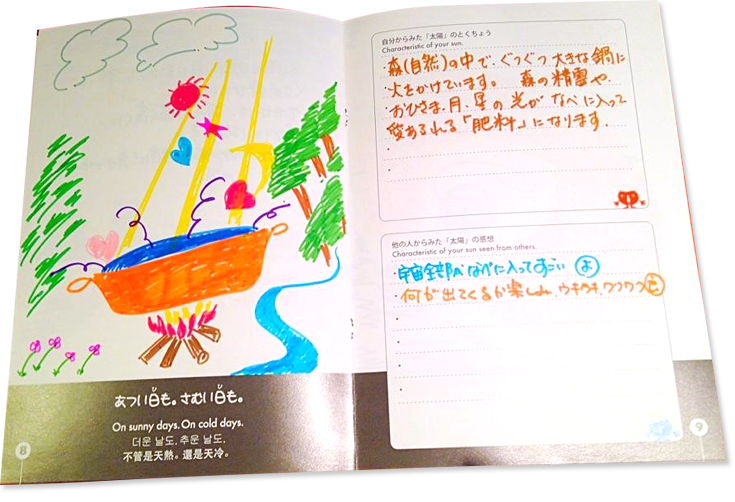 あつい日も。さむい日も。
On sunny days. On cold days.
더운 날도. 추운 날도.
不管是天熱。還是天冷。
8
自分からみた「太陽」のとくちょう
Characteristic of your sun.
・森(自然)の中で、ぐつぐつ大きな鍋に
火をかけています。 森の精霊や、
おひさま、月、星の光がなべに入って
愛あるれる「肥料」になります。
他の人からみた「太陽」の感想
Characteristic of your sun seen from others.
・宇宙全部がなべに入ってすごい よ
・何が出てくるか楽しみ、ウキウキ、ワクワク
9